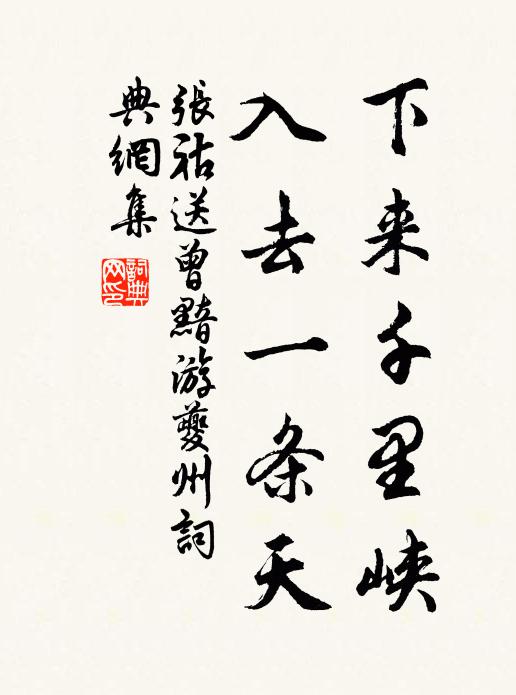 下来千里峡
入去一条天
張祜送曾黯游夔州詞
典網集
詞典网印